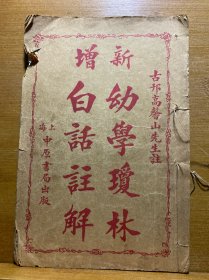 古邗高馨山先生註
新增
幼學瓊林
白話註解
上海
中原書局出版